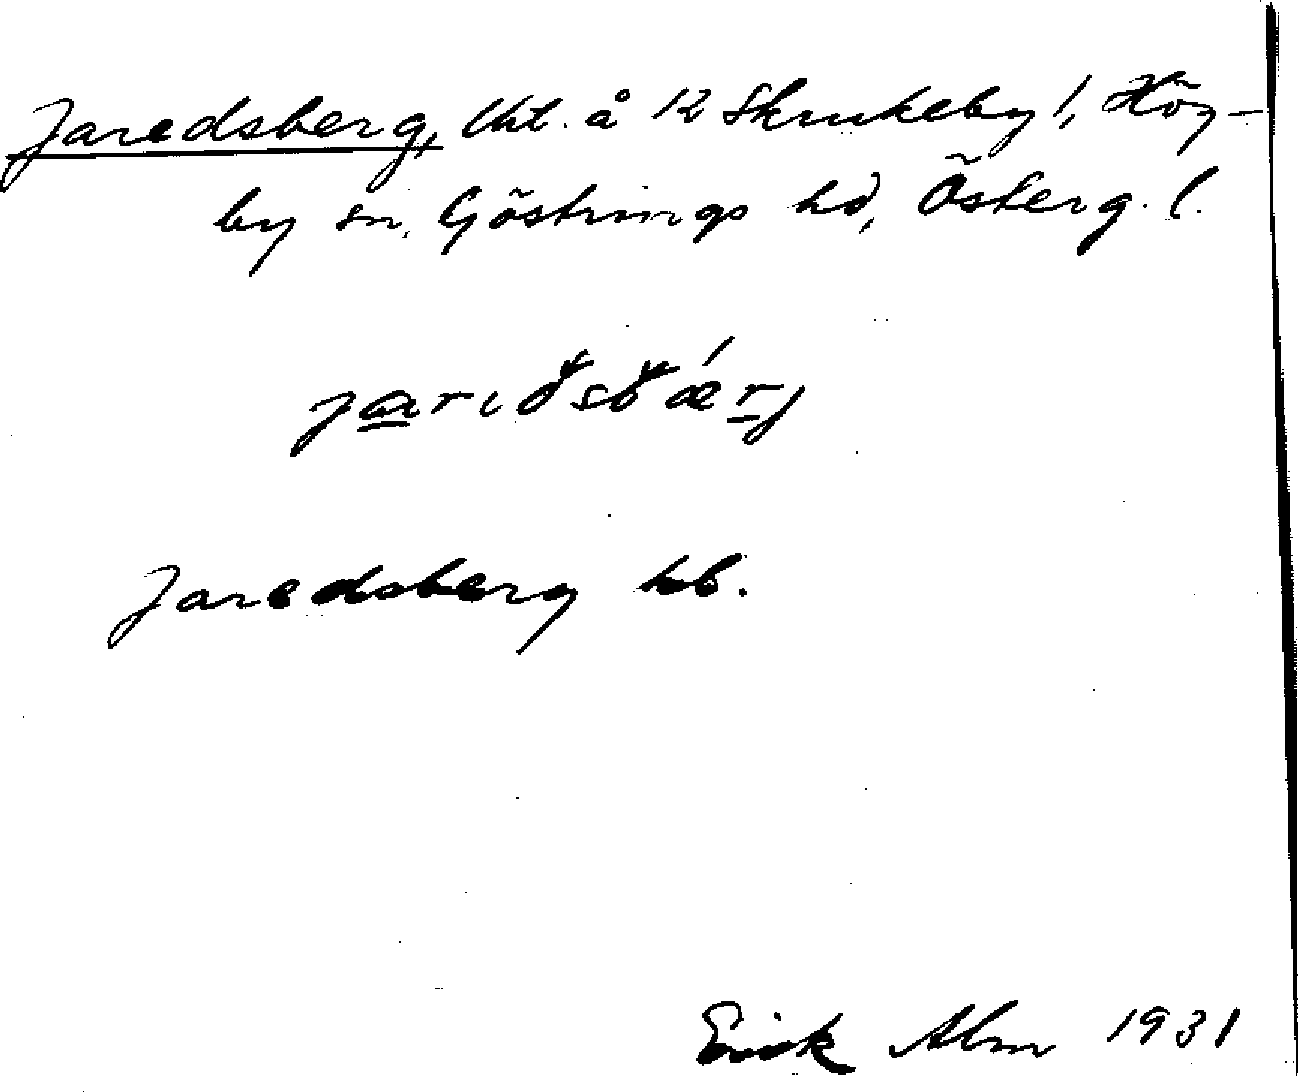 Jaredsberg, lht. å 12 Skrukeby 1, Hög-
by sn, Göstrings hd, Österg. l.
jarɩdsbærj
Jaredsberg hb.
Erik Alm 1931